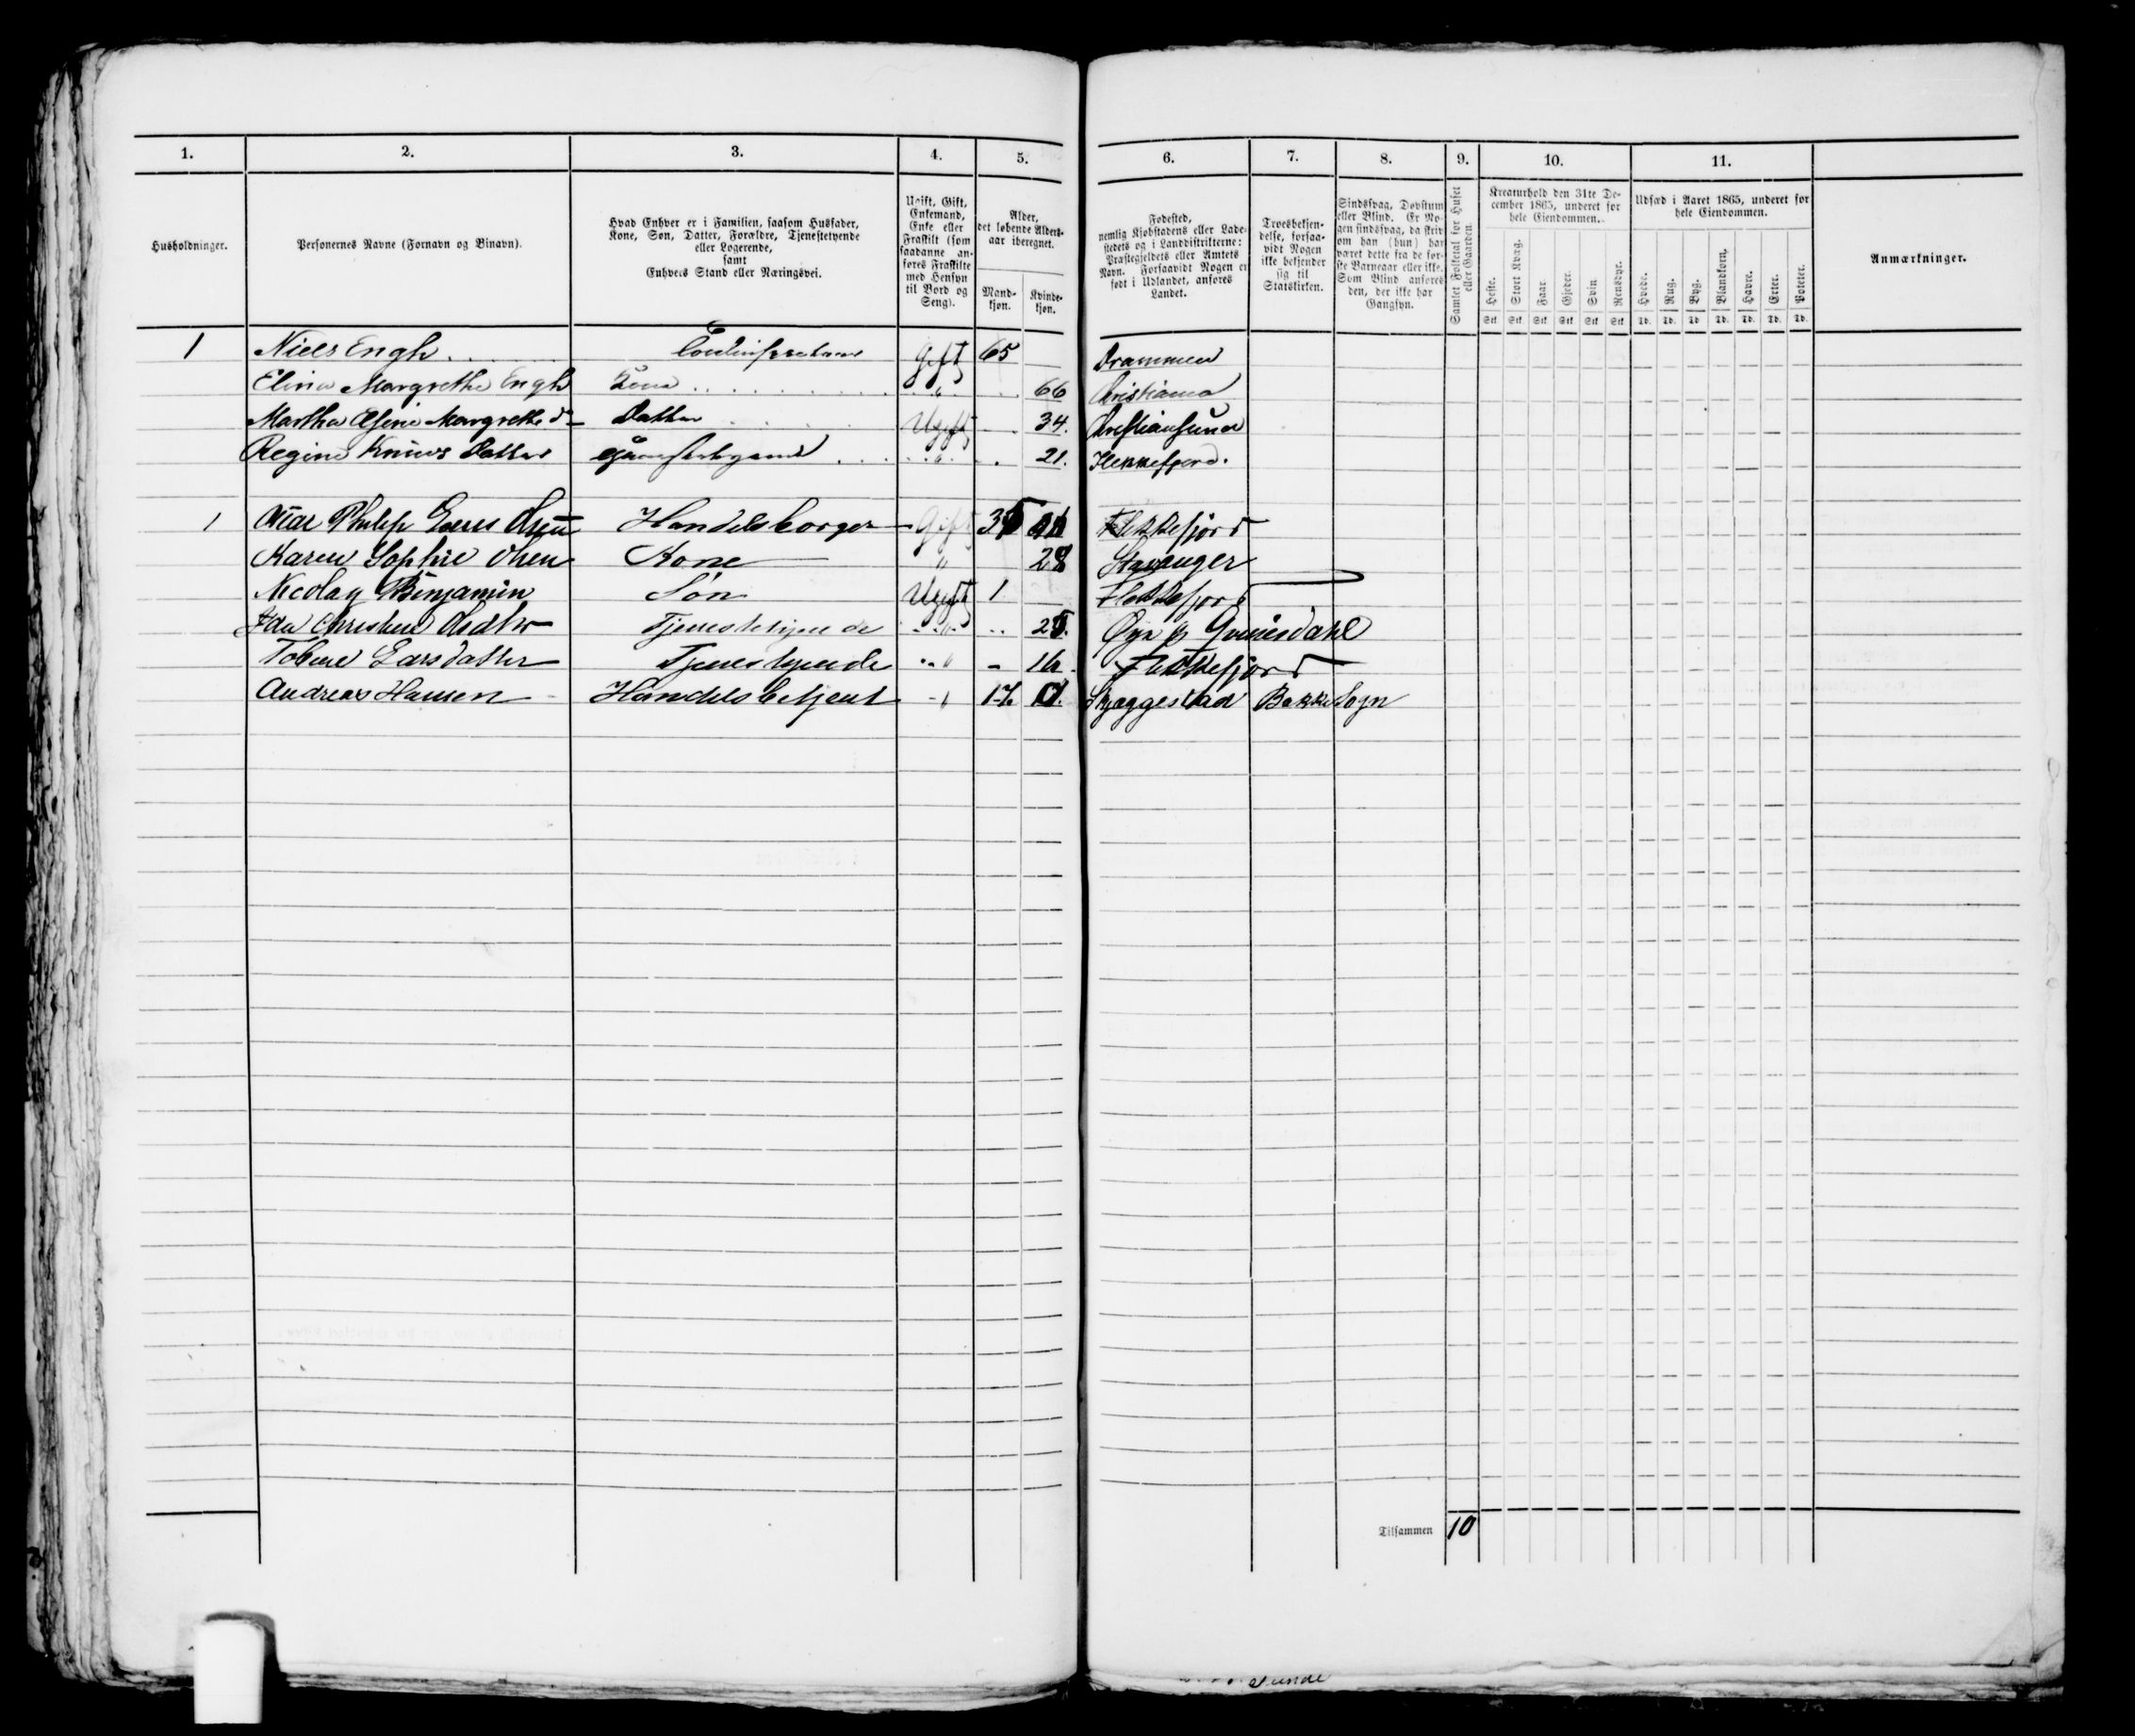 1. 2. 3. 4. 5. 6. 7. 8. 9. 10. 11.
Husholdninger.
Personernes Navne (Fornavn og Binavn).
Hvad Enhver er i Familien, saasom Husfader,
Kone, Søn, Datter, Forældre, Tjenestetyende
eller Logerende,
samt
Enhvers Stand eller Næringsvei.
Ugift, Gift,
Enkemand,
Enke eller
Fraskilt (som
saadanne an-
føres Fraskilte
med Hensyn
til Bord og
Seng).
Alder,
det løbende Alders-
aar iberegnet.
Mand-
kjøn.
Kvinde-
kjøn.
Fødested,
nemlig Kjøbstadens eller Lade-
stedets og i Landdistrikterne:
Præstegjeldets eller Amtets
Navn. Forsaavidt Nogen er
født i Udlandet, anføres
Landet.
Troesbekjen-
delse, forsaa-
vidt Nogen
ikke bekjender
sig til
Statskirken.
Sindssvag, Døvstum
eller Blind. Er No-
gen sindssvag, da skriv
om han (hun) har
været dette fra de før-
ste Barneaar eller ikke.
Som Blind anføres
den, der ikke har
Gangsyn.
Samlet Folketal for Huset
eller Gaarden.
Kreaturhold den 31te De-
cember 1865, underet for
hele Eiendommen.
Heste. Stort Kvæg. Faar. Gjeder. Svin. Rensdyr.
Stk. Stk. Stk. Stk. Stk. Stk.
Udsæd i Aaret 1865, underet for
hele Eiendommen.
Hvede. Rug. Byg. Blandkorn. Havre. Erter. Poteter.
Td. Td. Td. Td. Td. Td. Td.
Anmærkninger.
1 Niels Engh Gift 65 Drammen
Margrethe Engh Kone " 66 Christiania
Martha Margrethe do Datter Ugift 34. Christiansund
Regine Knuds Datter " 21. Flekkefjord.
1 Philip Handelsborger Gift Flekkefjord
Karen Sophie Kone " 28 Stavanger
Nicolay Benjamin Søn Ugift 1 Flekkefjord
Tjenestetyende " 25. Qvinesdahl
Larsdatter Tjenestetyende " 16. Flekkefjord
Andreas Hansen Handelsbetjent " 17 Skjeggestad Bakke Sogn
Tilsammen 10